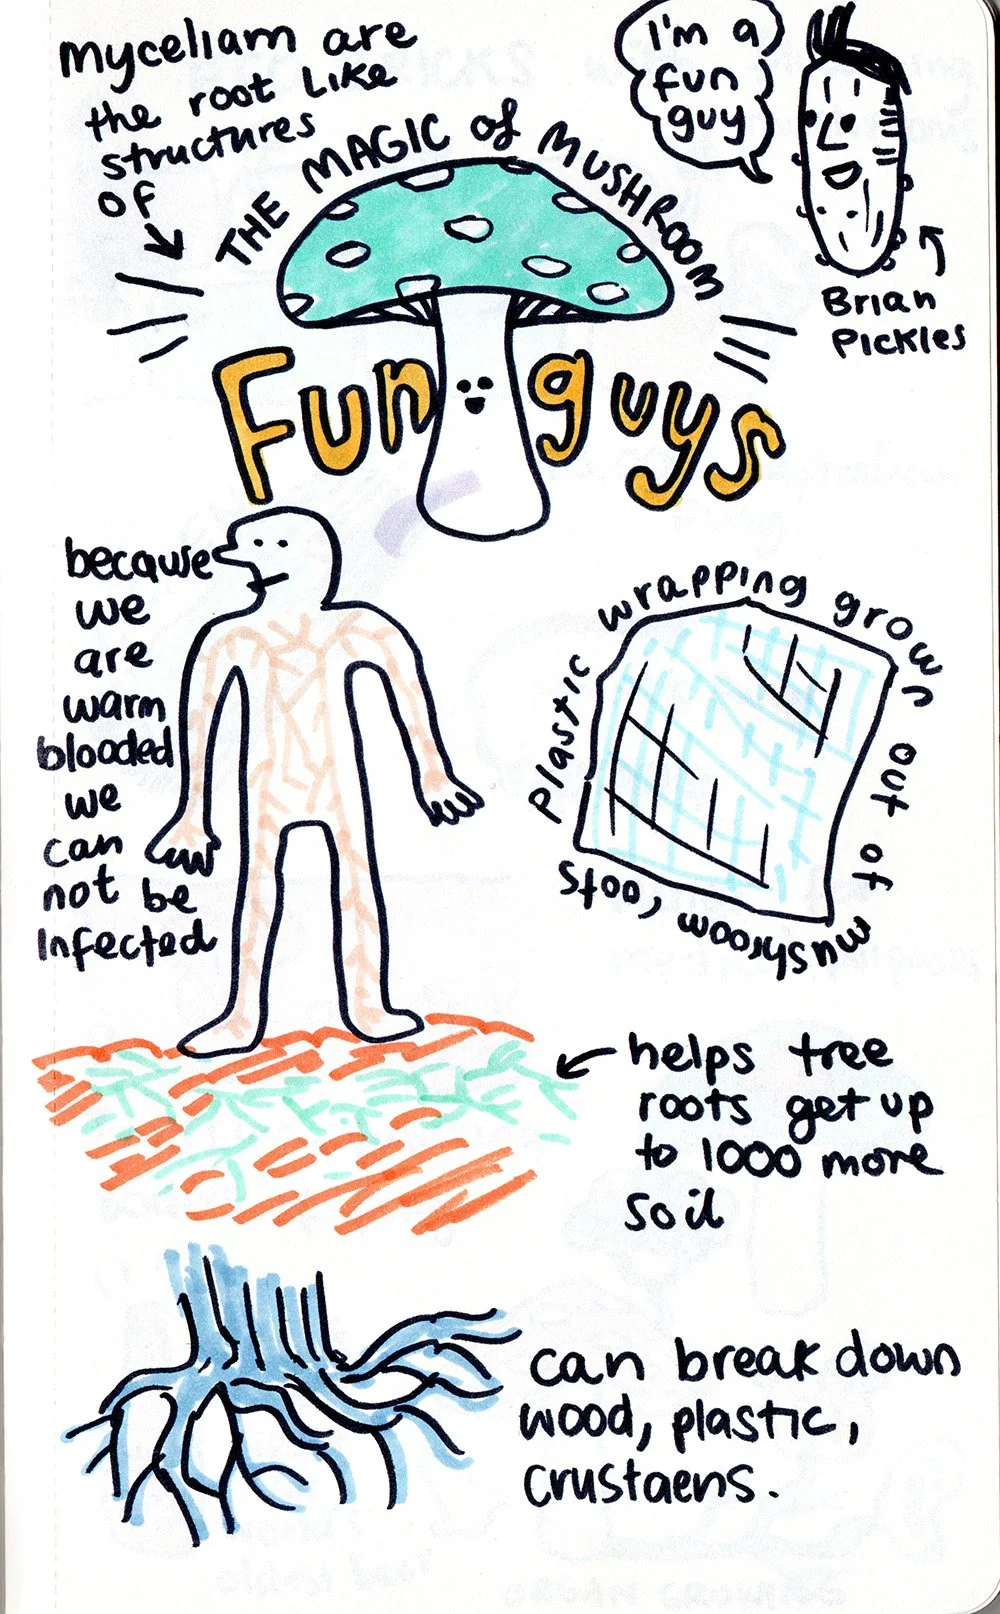 myceliam are
the root like
structures
of
I'm a
fun
guy
THE MAGIC of MUSHROOM
Brian
Pickles
Fun guys
because
we
are
warm
blooded
we
can
not be
Infected
plastic wrapping grown out of mushroom roots
helps tree
roots get up
to 1000 more
soil
can break down
wood, plastic,
crustaens.